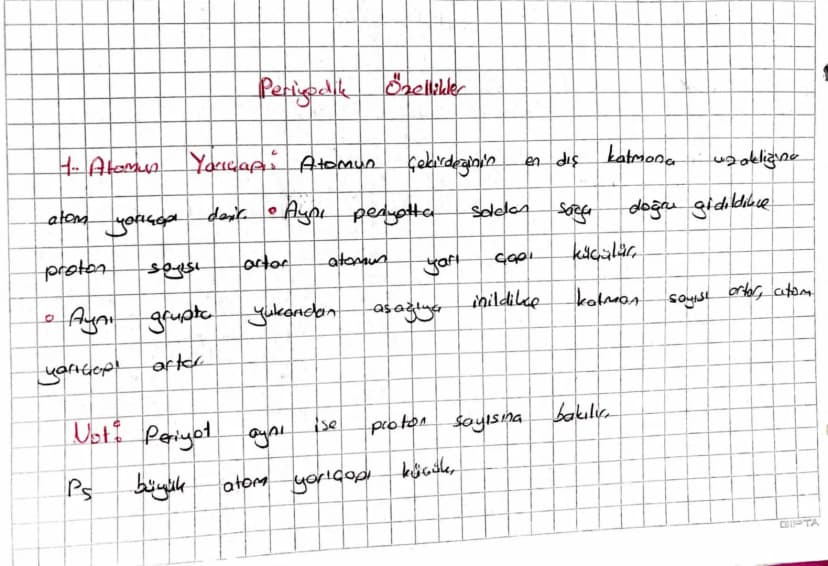 Periyodik Özellikler
1. Atomun Yarıçapı: Atomun çekirdeğinin en dış katmana uzaklığına
atom yarıçapı denir. • Aynı periyotta soldan sağa doğru gidildikçe
proton sayısı artar atomun yarı çapı küçülür.
• Aynı grupta yukarıdan aşağıya inildikçe katman sayısı artar, atom
yarıçapı artar.
Not: Periyot aynı ise proton sayısına bakılır.
Ps büyük atom yarıçapı küçük.
GIPTA